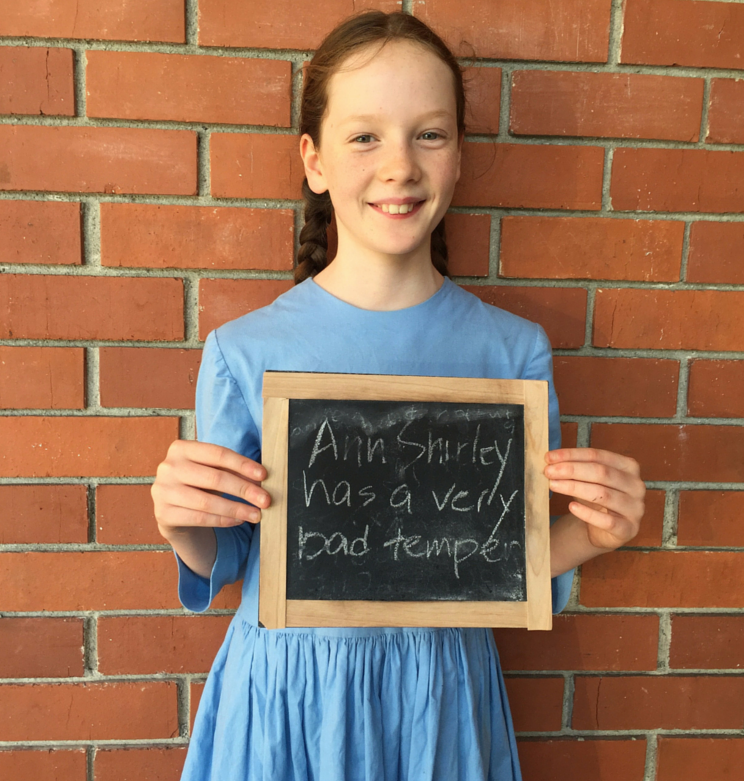 Ann Shirley
has a very
bad temper